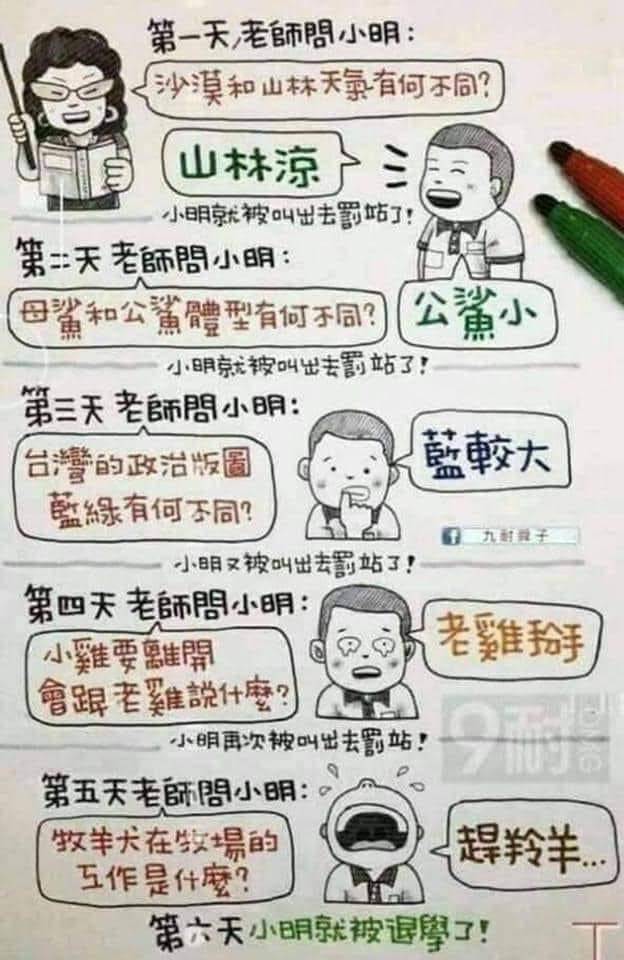 第一天,老師問小明:
沙漠和山林天氣有何不同?
山林涼
小明就被叫出去罰站了!
第二天 老師問小明:
母鯊和公鯊體型有何不同?
公鯊小
小明就被叫出去罰站了!
第三天 老師問小明:
台灣的政治版圖
藍綠有何不同?
藍較大
九耐舜子
小明又被叫出去罰站了!
第四天 老師問小明:
小雞要離開
會跟老雞說什麼?
老雞掰
小明再次被叫出去罰站!
9耐
第五天老師問小明:
牧羊犬在牧場的
工作是什麼?
趕羚羊...
第六天 小明就被退學了!